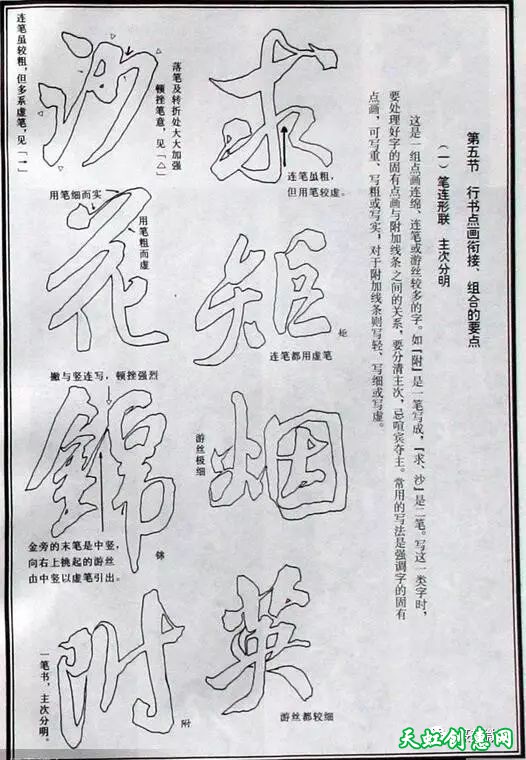 第五节 行书点画衔接、组合的要点
（一） 笔连形联 主次分明
这是一组点画连绵、连笔或游丝较多的字。如「附」是一笔写成，「求、沙」是二笔。写这一类字时，
要处理好字的固有点画与附加线条之间的关系，要分清主次，忌喧宾夺主。常用的写法是强调字的固有
点画，可写重、写粗或写实，对于附加线条则写轻、写细或写虚。
求
连笔虽粗，
但用笔较虚。
矩
连笔都用虚笔
矩
烟
游丝极细
英
游丝都较细
沙
落笔及转折处大大加强
顿挫笔意，见「△」
连笔虽较粗，但多系虚笔，见「→」
花
用笔细而实
用笔粗而虚
撇与竖连写，顿挫强烈
锦
金旁的末笔是中竖，
向右上挑起的游丝
由中竖以虚笔引出。
锦
附
附
一笔书，主次分明。
天虹创意网